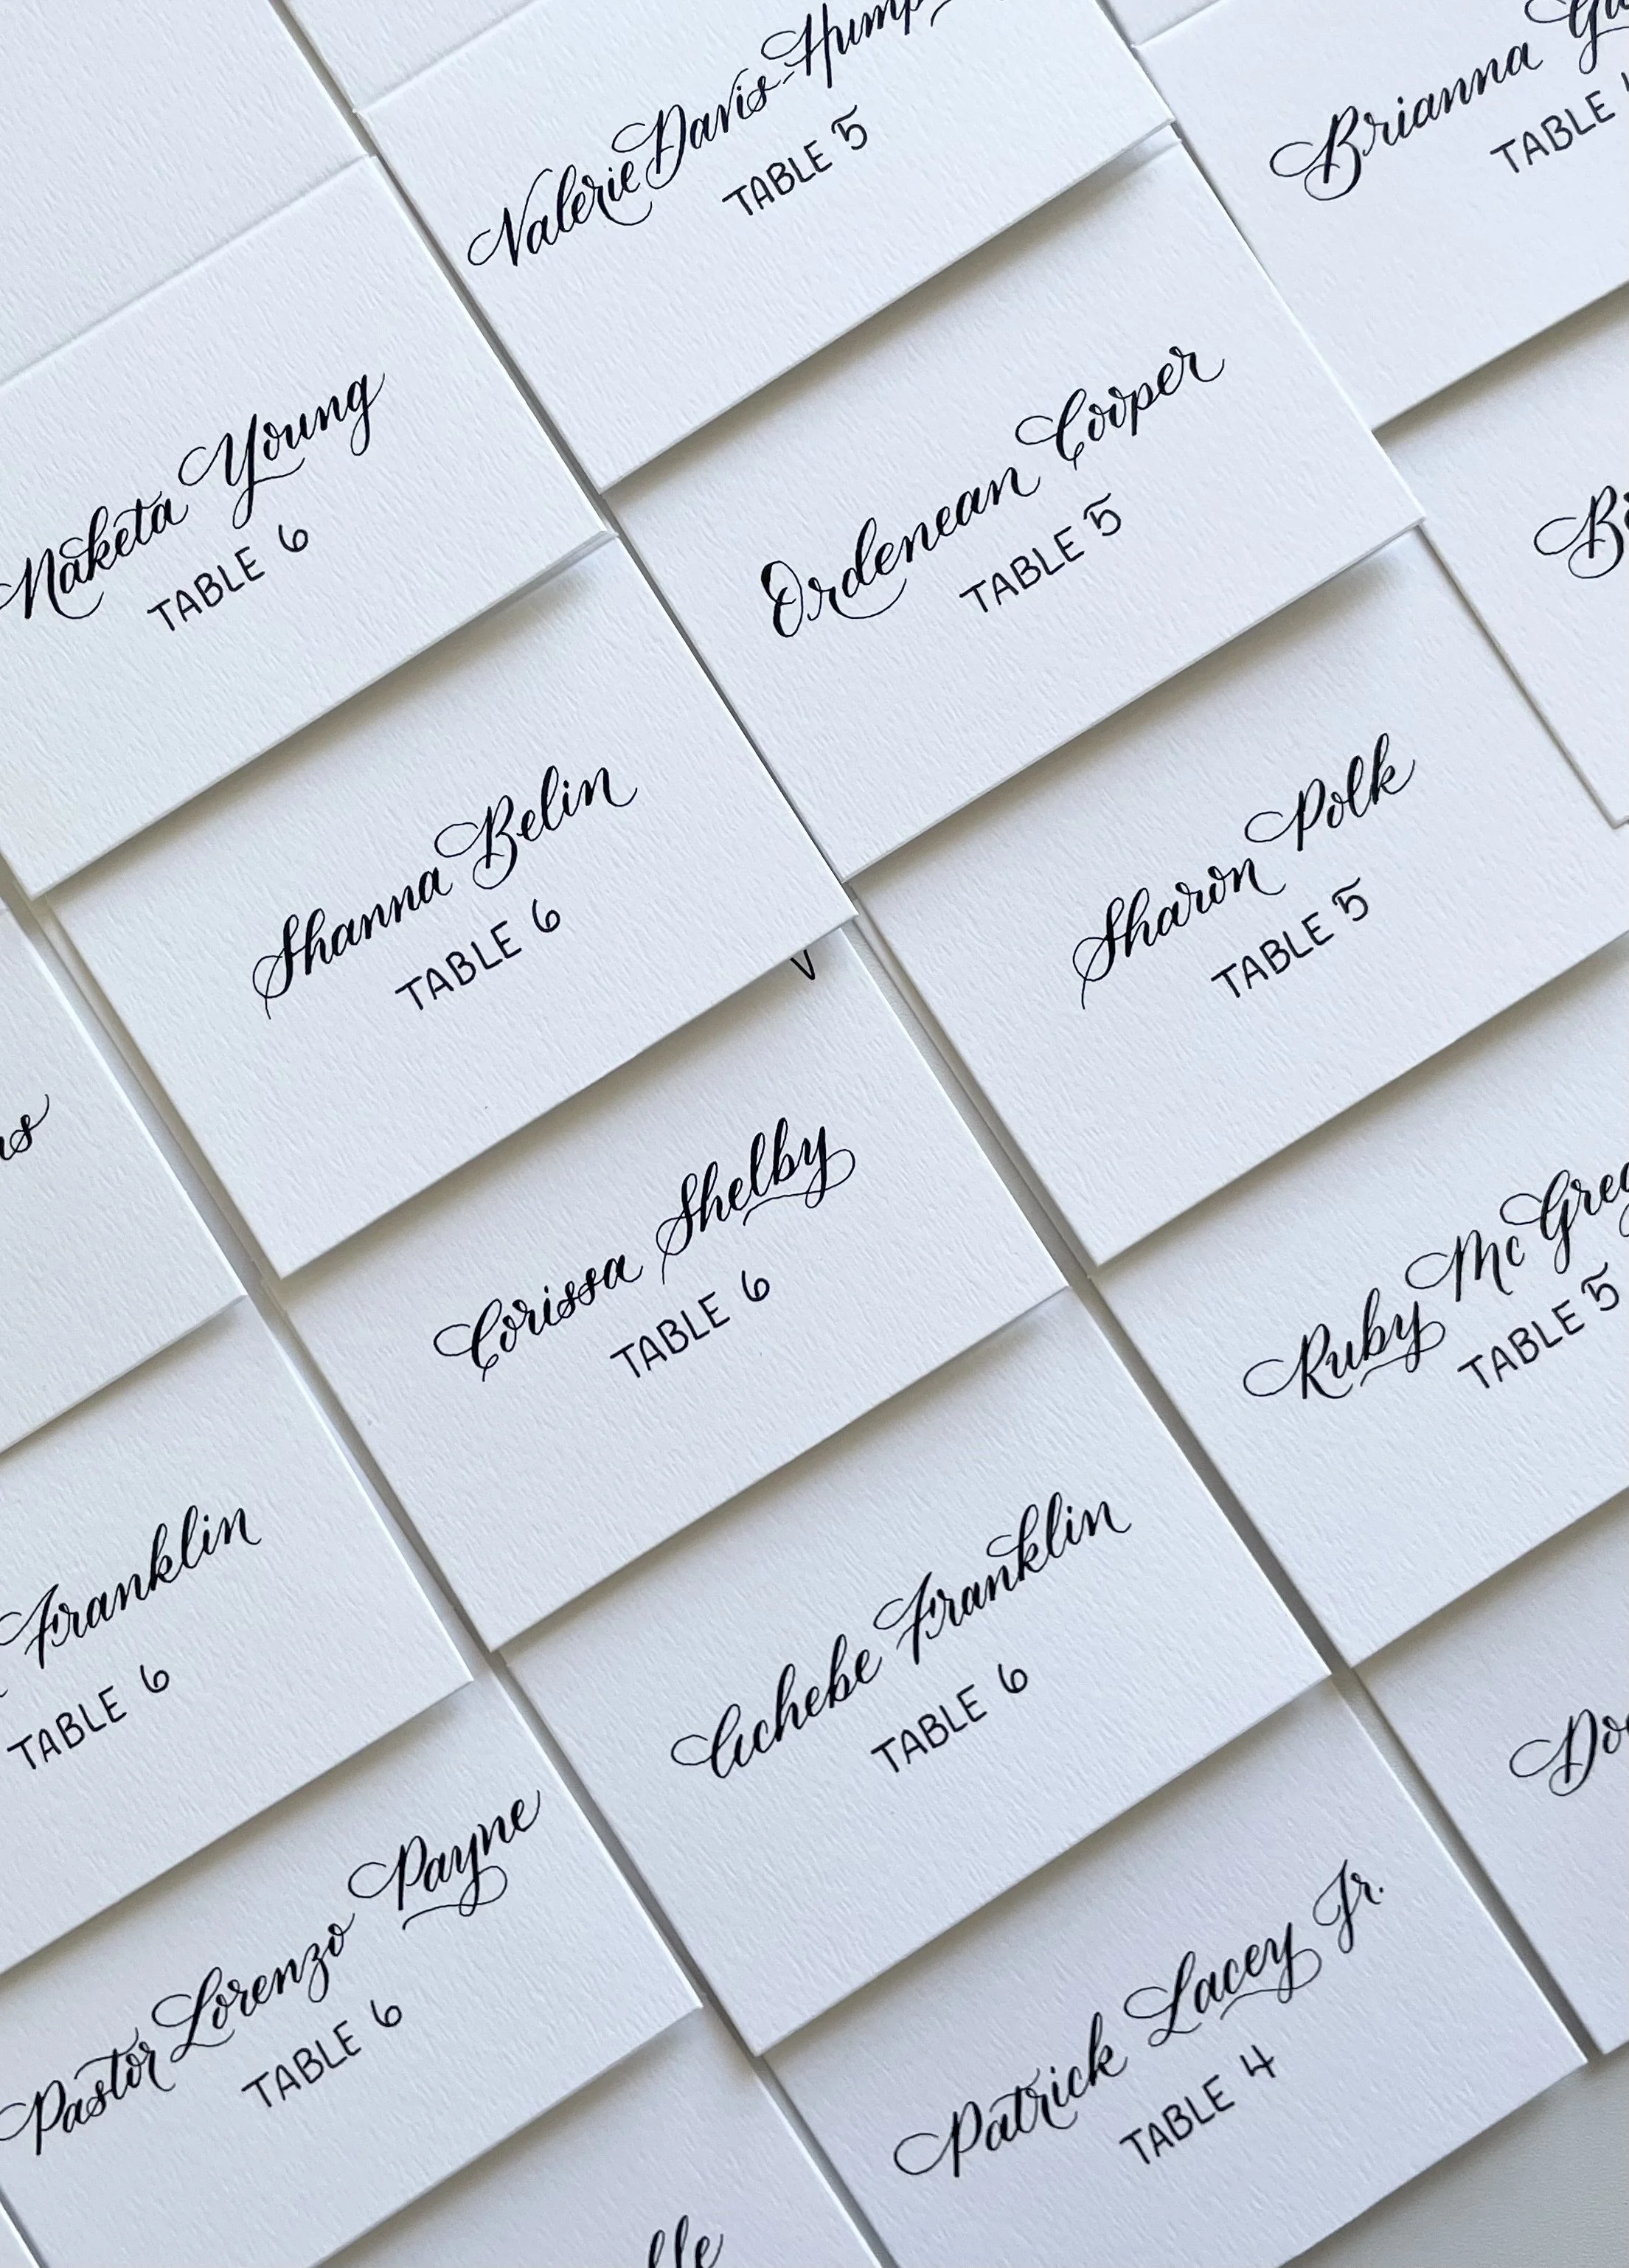 Valerie Davis-
TABLE 5
Brianna
TABLE
Naketa Young
TABLE 6
Ordenean Cooper
TABLE 5
Shanna Belin
TABLE 6
Sharon Polk
TABLE 5
Corissa Shelby
TABLE 6
Ruby
TABLE 5
Franklin
TABLE 6
Achebe Franklin
TABLE 6
Pastor Lorenzo Payne
TABLE 6
Patrick Lacey Jr.
TABLE 4